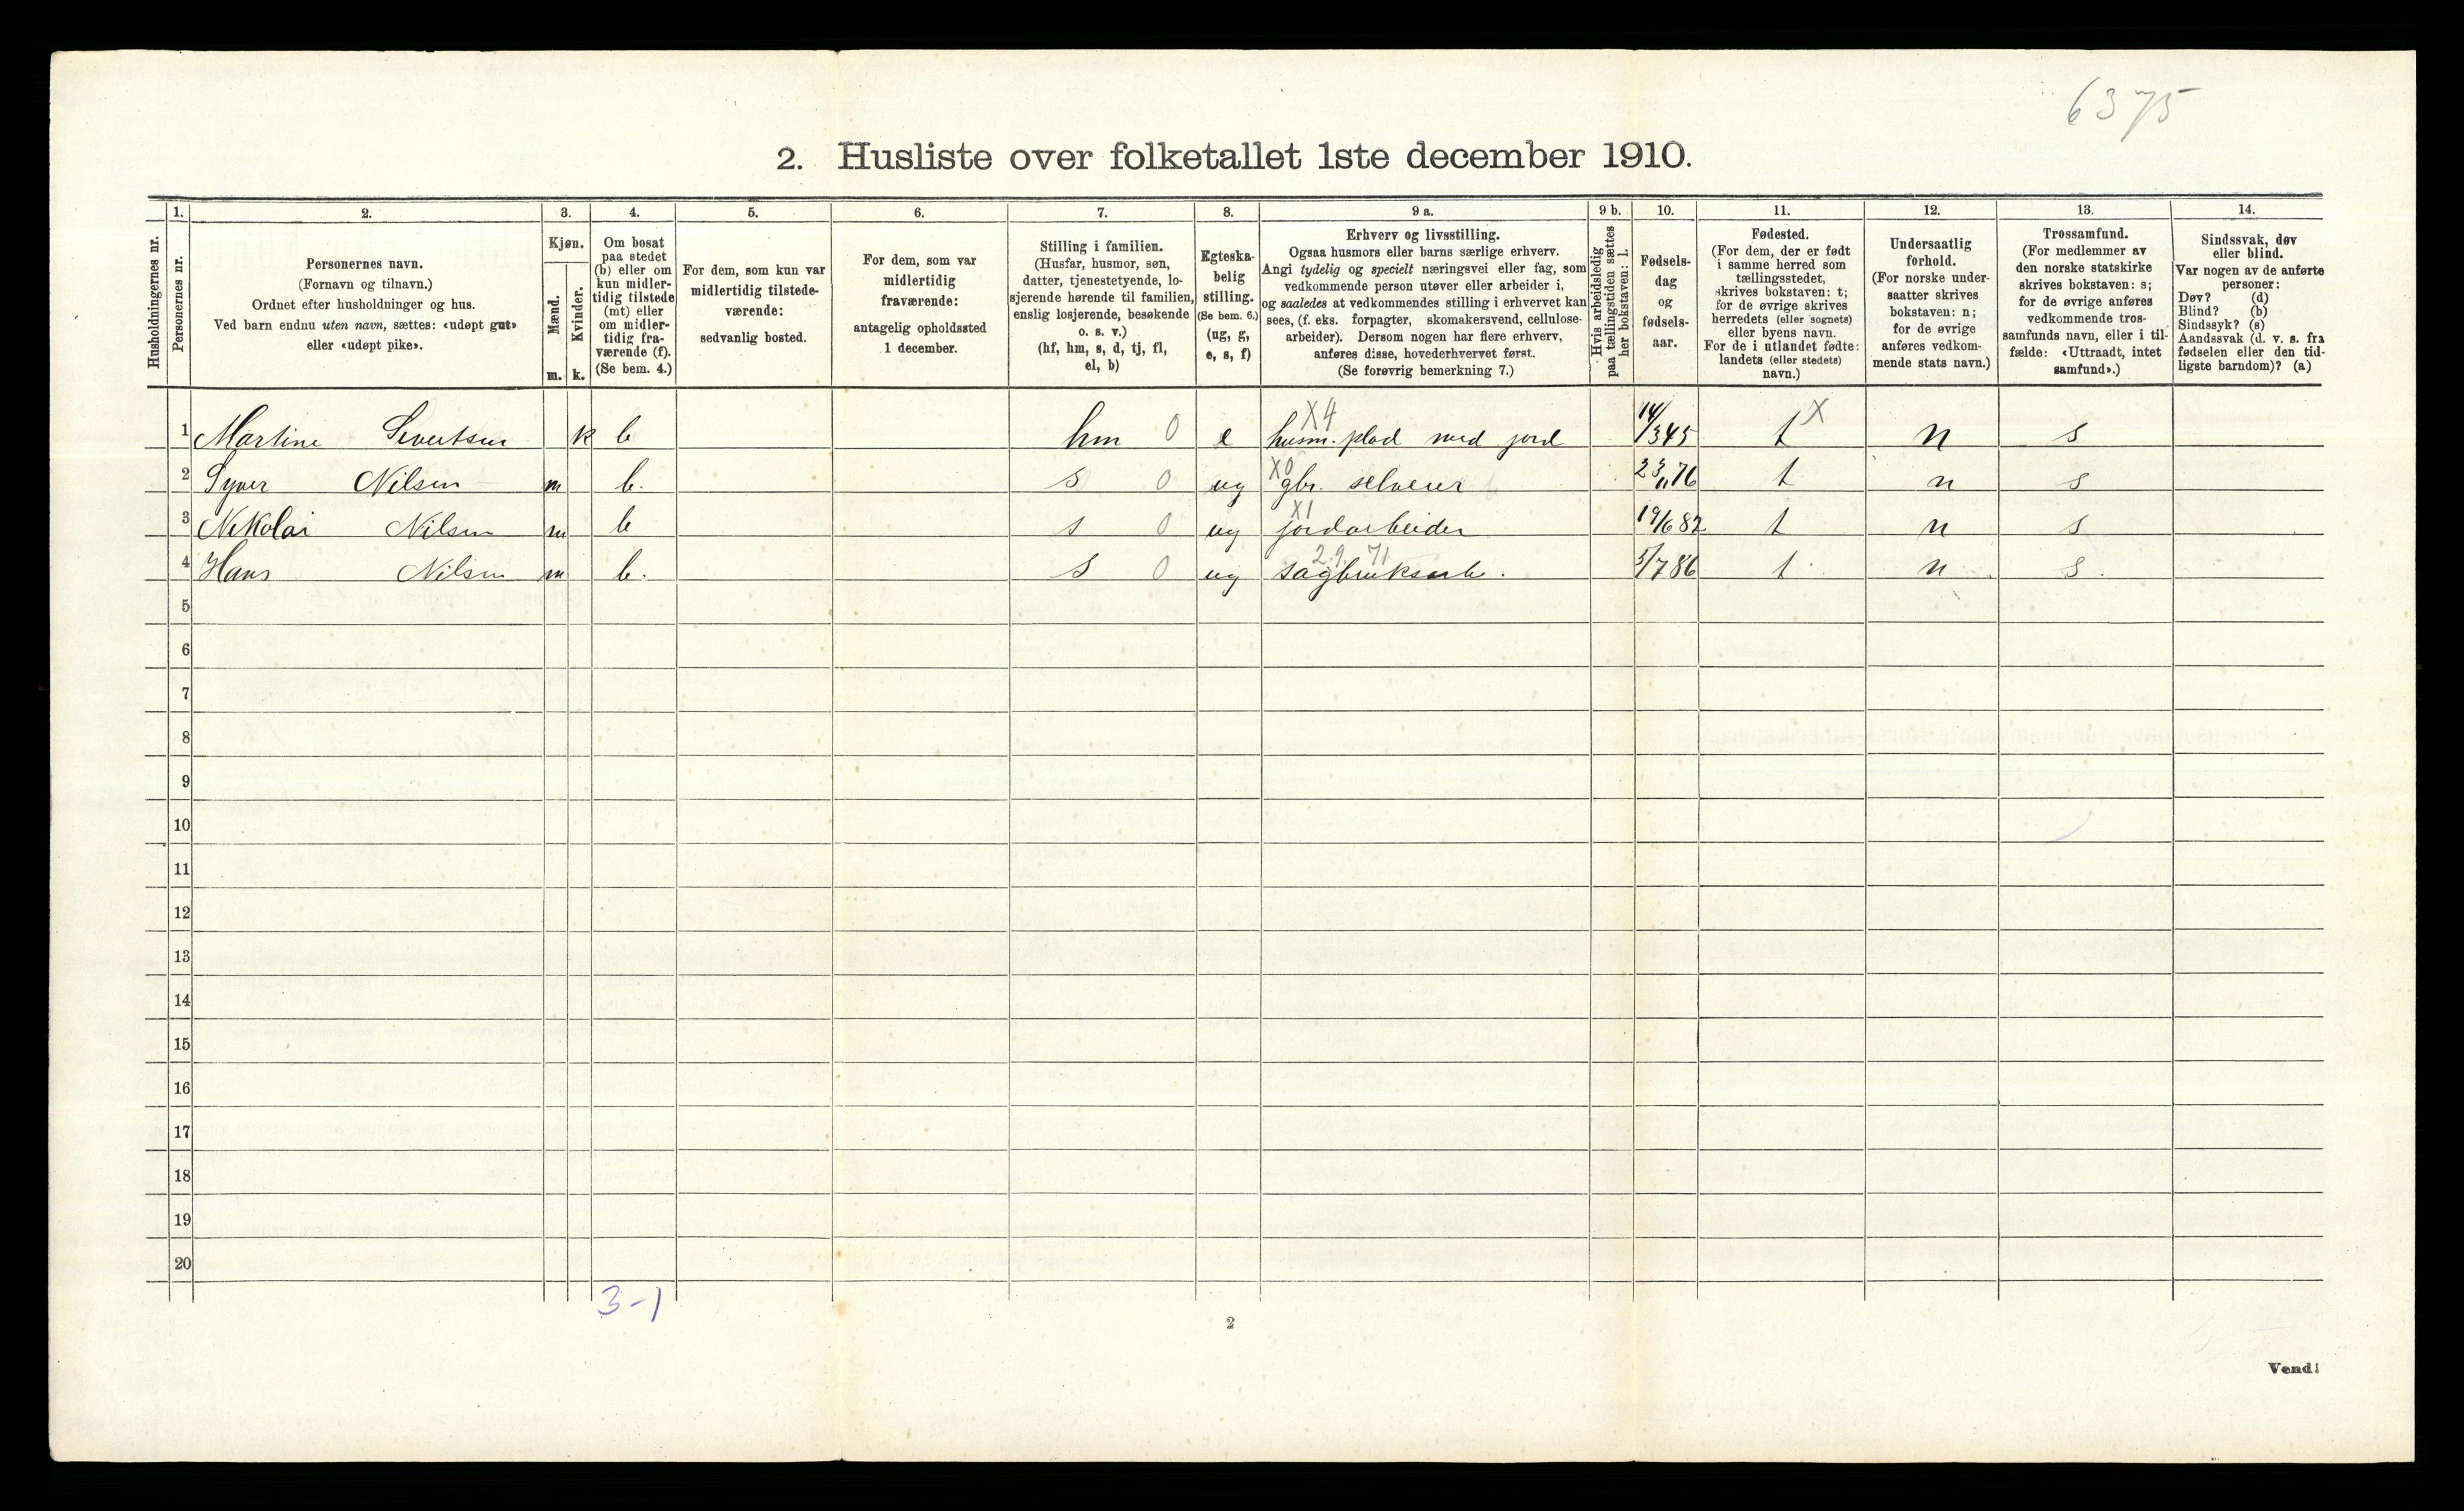 6375
2. Husliste over folketallet 1ste december 1910.
Husholdningernes nr.
1.
Personernes nr.
2.
Personernes navn.
(Fornavn og tilnavn.)
Ordnet efter husholdninger og hus.
Ved barn endnu uten navn, sættes: «udøpt gut»
eller «udøpt pike».
3.
Kjøn.
Mænd.
Kvinder.
m. k.
4.
Om bosat
paa stedet
(b) eller om
kun midler-
tidig tilstede
(mt) eller
om midler-
tidig fra-
værende (f).
(Se bem. 4.)
5.
For dem, som kun var
midlertidig tilstede-
værende:
sedvanlig bosted.
6.
For dem, som var
midlertidig
fraværende:
antagelig opholdssted
1 december.
7.
Stilling i familien.
(Husfar, husmor, søn,
datter, tjenestetyende, lo-
sjerende hørende til familien,
enslig losjerende, besøkende
o. s. v.)
(hf, hm, s, d, tj, fl,
el, b)
8.
Egteska-
belig
stilling.
(Se bem. 6.)
(ug, g,
e, s, f)
9 a.
Erhverv og livsstilling.
Ogsaa husmors eller barns særlige erhverv.
Angi tydelig og specielt næringsvei eller fag, som
vedkommende person utøver eller arbeider i,
og saaledes at vedkommendes stilling i erhvervet kan
sees, (f. eks. forpagter, skomakersvend, cellulose-
arbeider). Dersom nogen har flere erhverv,
anføres disse, hovederhvervet først.
(Se forøvrig bemerkning 7.)
9 b.
Hvis arbeidsledig
paa tællingstiden sættes
her bokstaven: l.
10.
Fødsels-
dag
og
fødsels-
aar.
11.
Fødested.
(For dem, der er født
i samme herred som
tællingsstedet,
skrives bokstaven: t;
for de øvrige skrives
herredets (eller sognets)
eller byens navn.
For de i utlandet fødte:
landets (eller stedets)
navn.)
12.
Undersaatlig
forhold.
(For norske under-
saatter skrives
bokstaven: n;
for de øvrige
anføres vedkom-
mende stats navn.)
13.
Trossamfund.
(For medlemmer av
den norske statskirke
skrives bokstaven: s;
for de øvrige anføres
vedkommende tros-
samfunds navn, eller i til-
fælde: «Uttraadt, intet
samfund».)
14.
Sindssvak, døv
eller blind.
Var nogen av de anførte
personer:
Døv? (d)
Blind? (b)
Sindssyk? (s)
Aandssvak (d. v. s. fra
fødselen eller den tid-
ligste barndom)? (a)
X4 X
1 Martine Severtsen k b hm 0 e husm. plad med jord 14/3 45 t n s
X0
2 Syver Nilsen m b. s 0 ug gbr. selveier 23/11 76 t n s
X1
3 Nikolai Nilsen m b s 0 ug jordarbeider 19/6 82 t n s
29 71
4 Hans Nilsen m b. s 0 ug sagbruksarb. 5/7 86 t n s.
5
6
7
8
9
10
11
12
13
14
15
16
17
18
19
20
3-1
2
Vend!